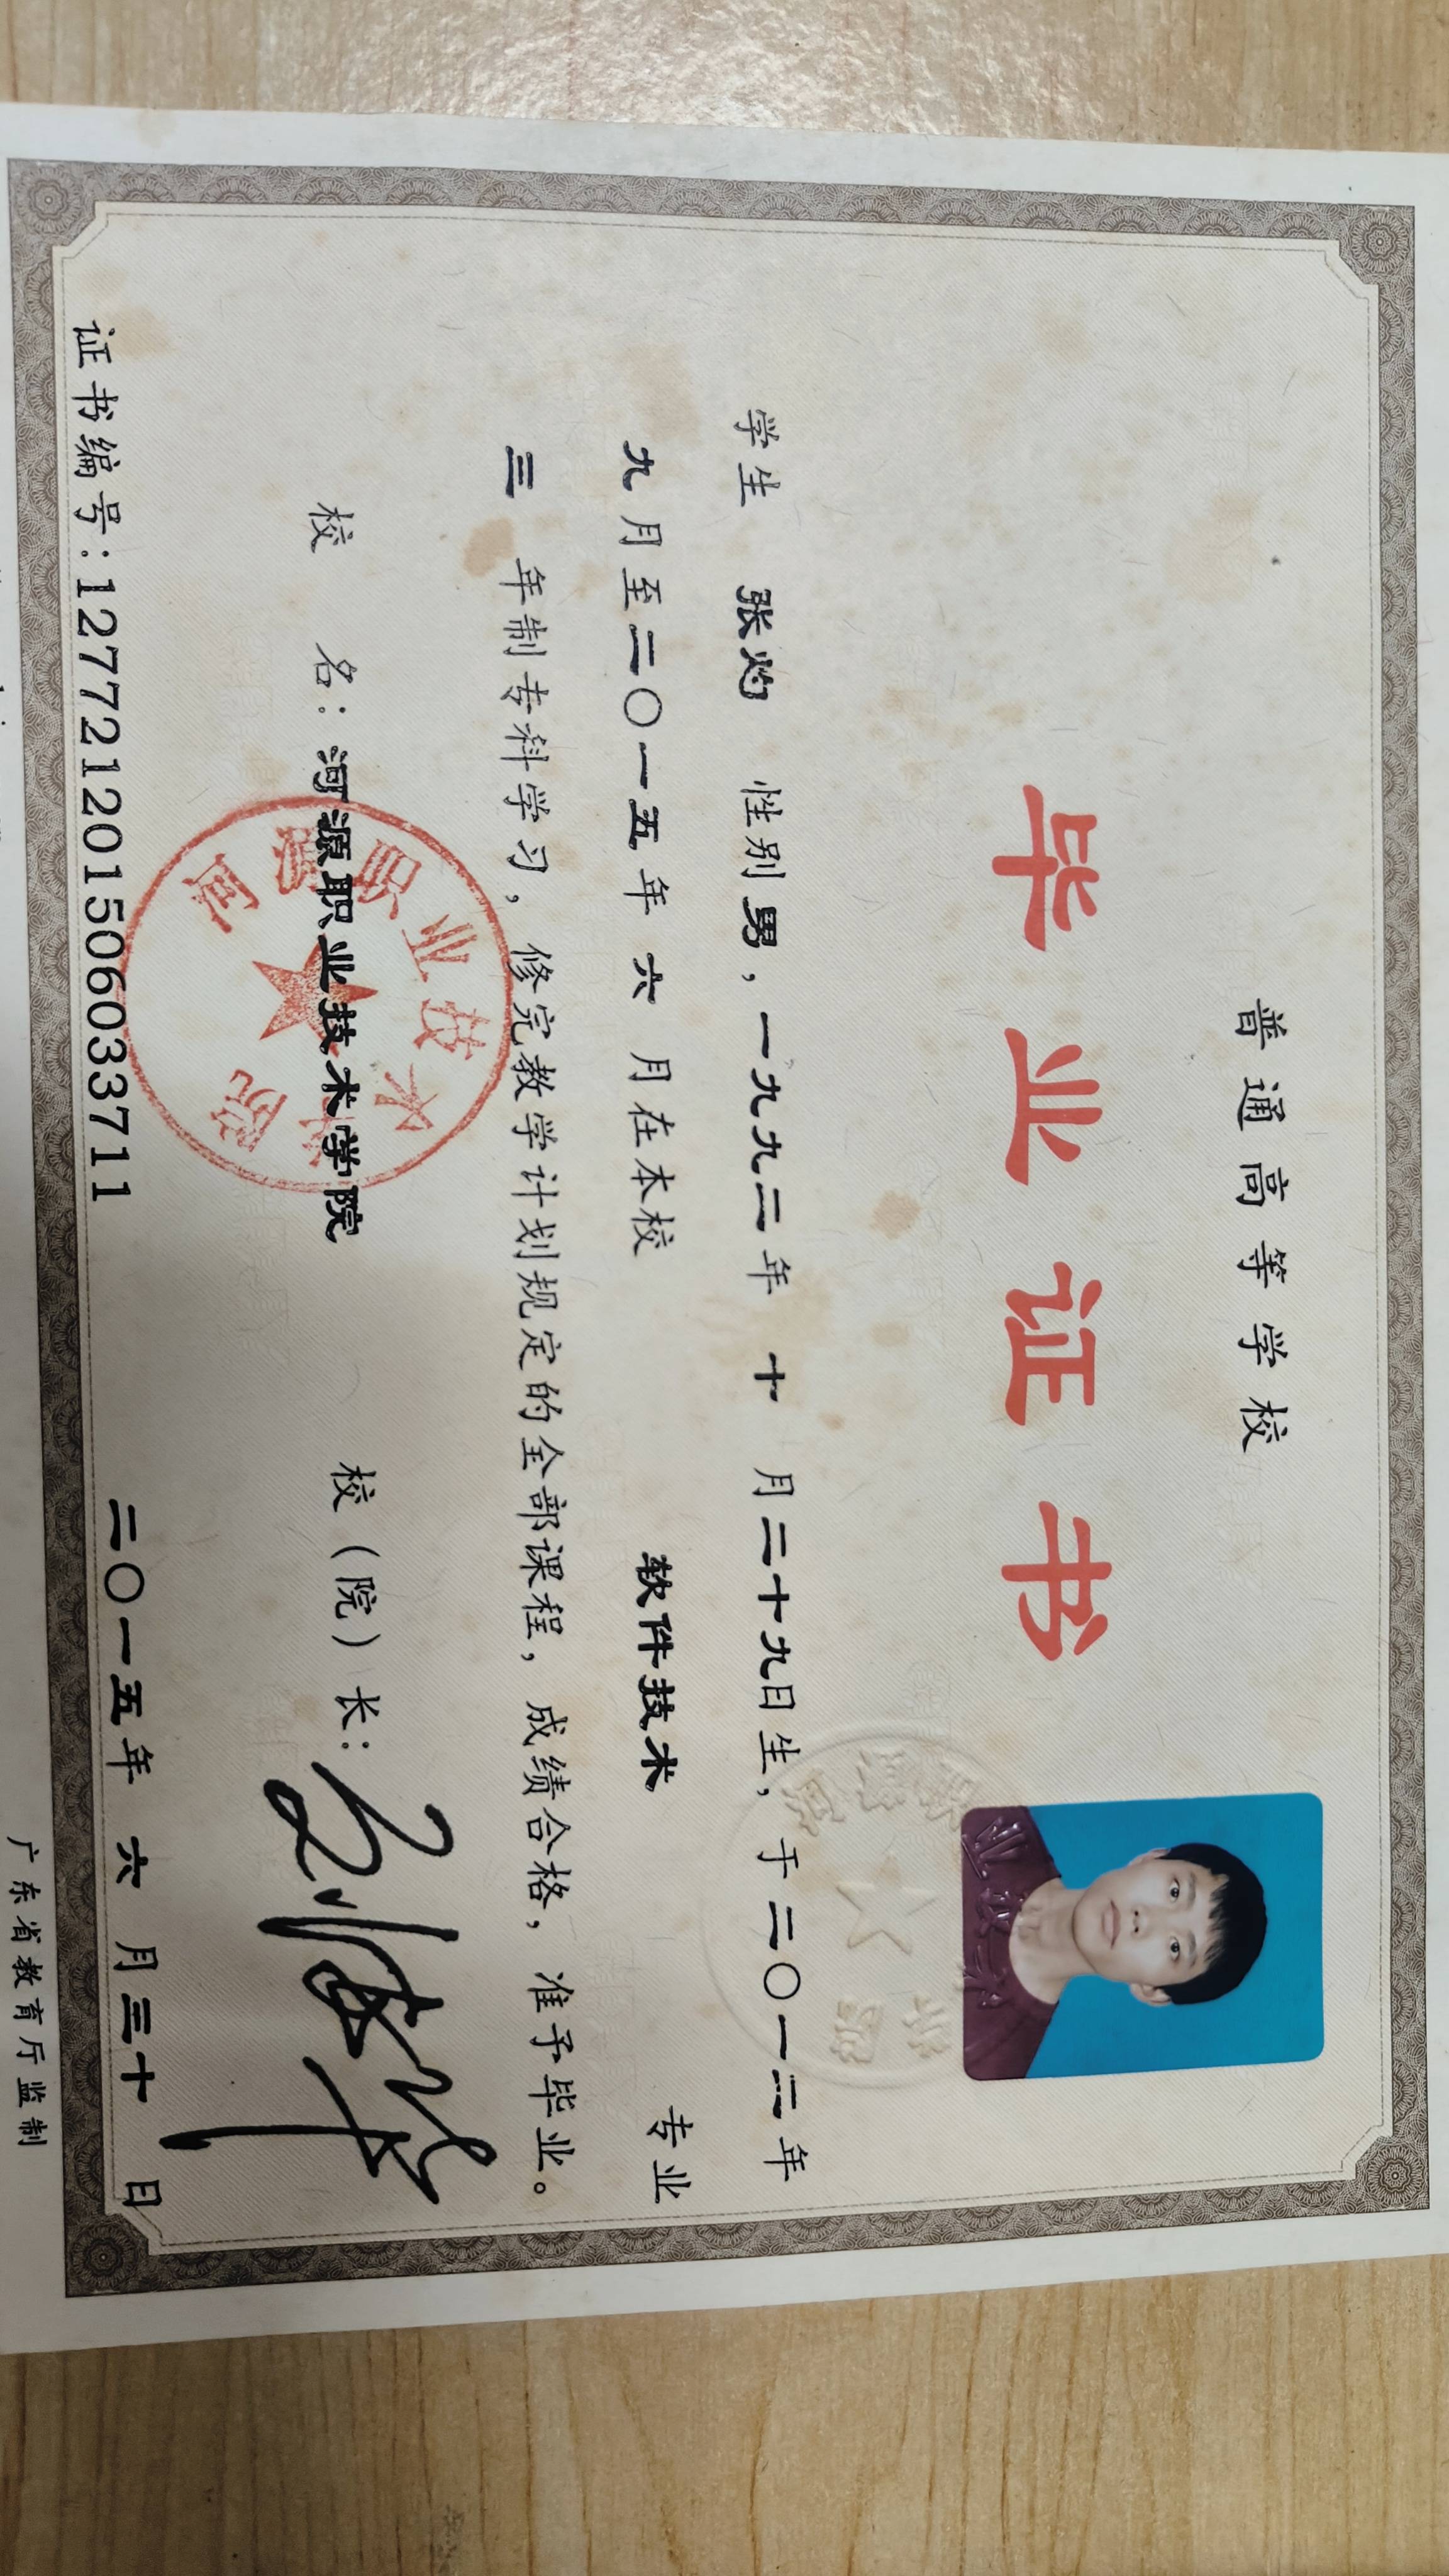 普通高等学校
毕业证书
学生 张灼 性别男，一九九二年 十 月二十九日生，于二〇一二年
九月至二〇一五年 六 月在本校 软件技术 专业
三 年制专科学习，修完教学计划规定的全部课程，成绩合格，准予毕业。
校 名：河源职业技术学院 校（院）长：
河源职业技术学院
证书编号：127721201506033711 二〇一五年 六 月三十 日
广东省教育厅监制